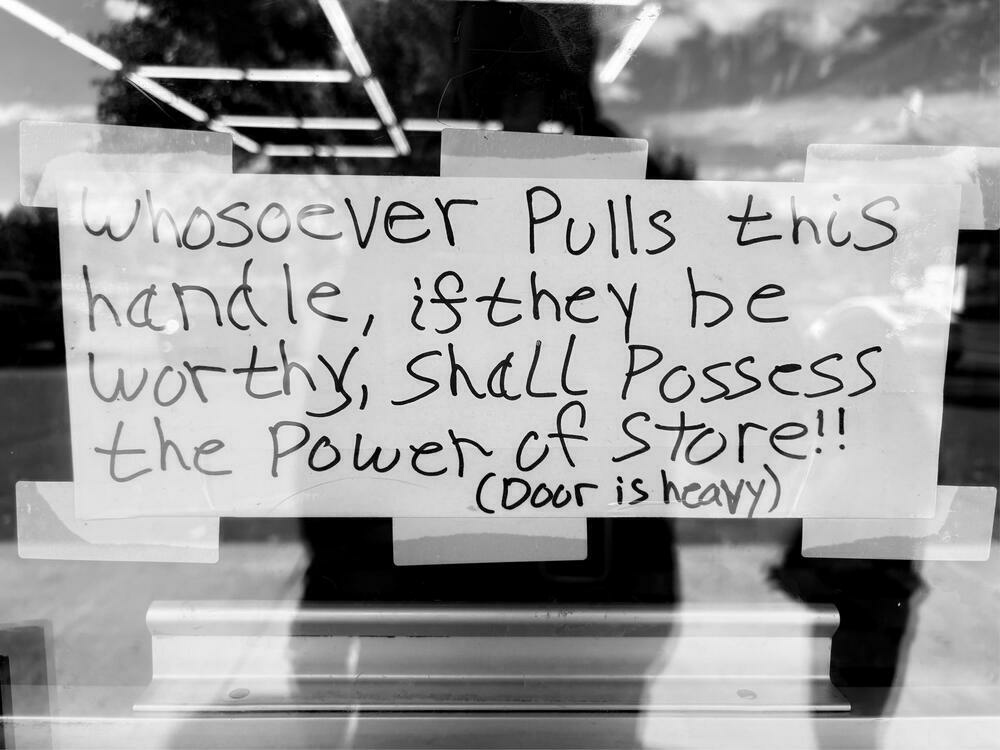 Whosoever Pulls this
handle, if they be
worthy, shall Possess
the Power of Store!!
(Door is heavy)